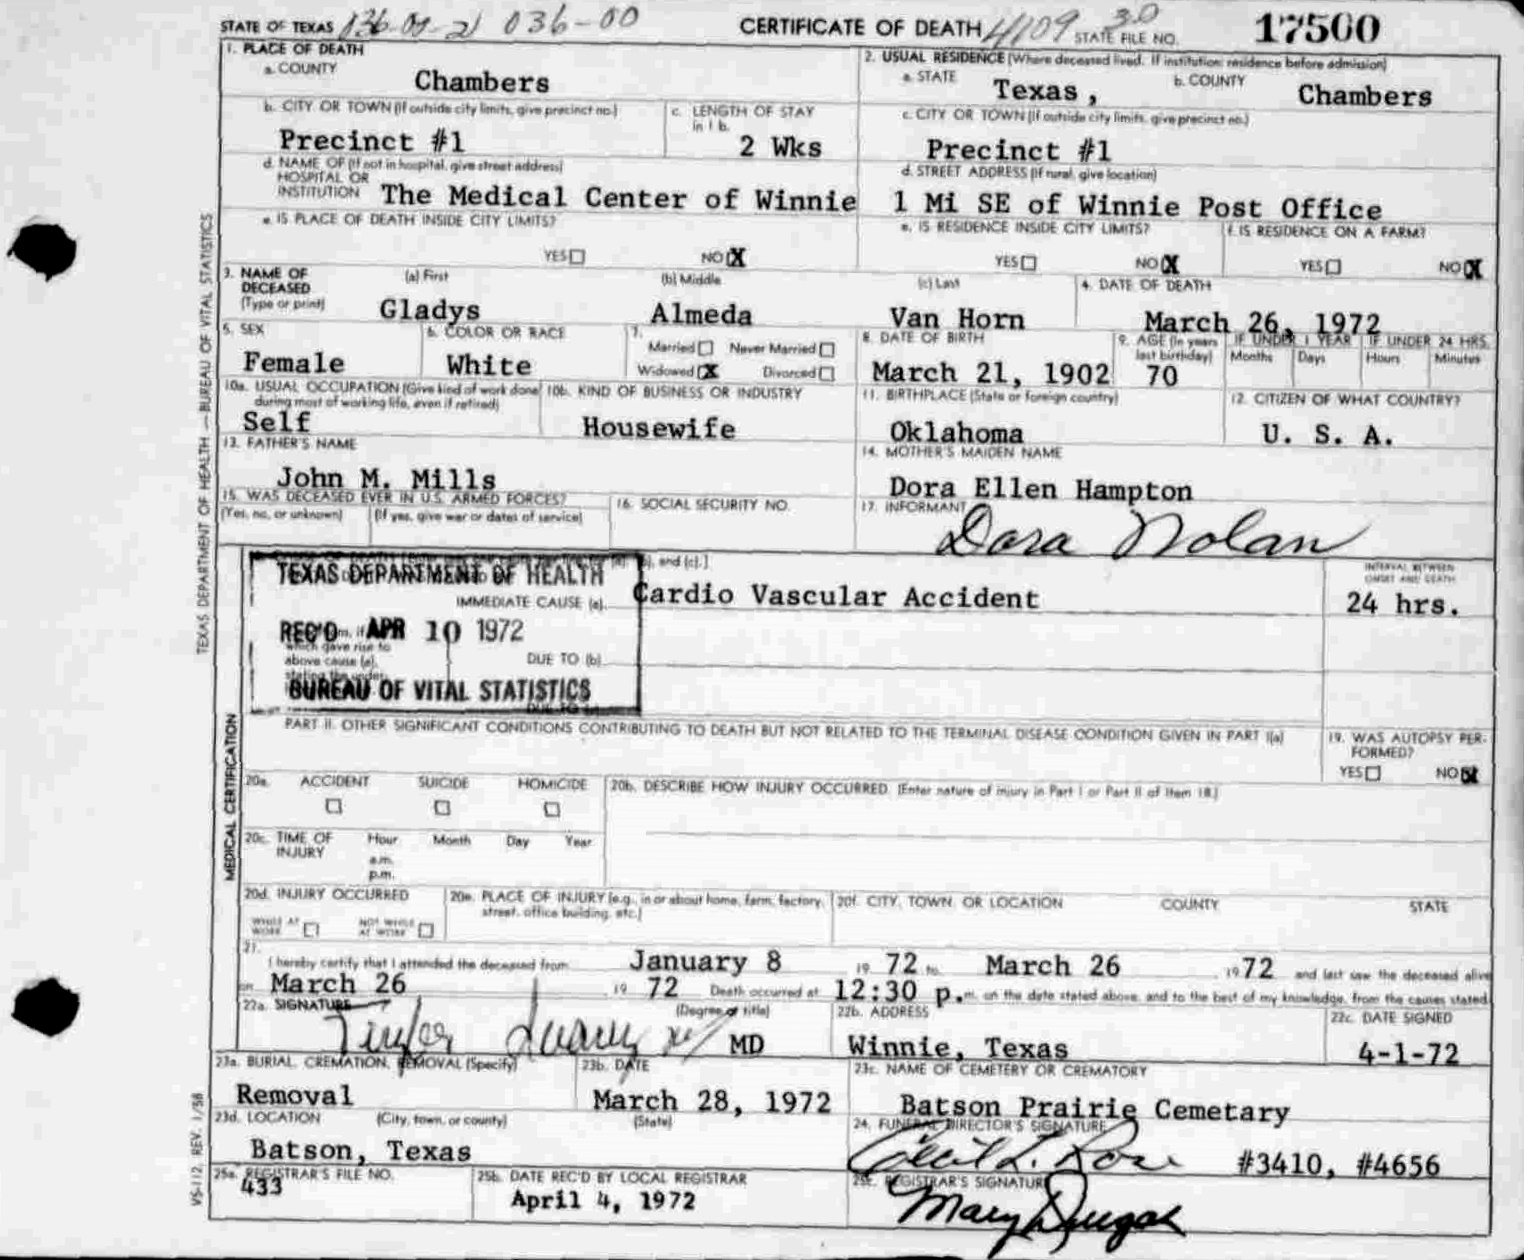 STATE OF TEXAS 036-00 CERTIFICATE OF DEATH 4109 30 STATE FILE NO. 17500
1. PLACE OF DEATH
a. COUNTY
Chambers
2. USUAL RESIDENCE (Where deceased lived. If institution: residence before admission)
a. STATE
Texas,
b. COUNTY
Chambers
b. CITY OR TOWN (If outside city limits, give precinct no.)
Precinct #1
c. LENGTH OF STAY
in 1 b.
2 Wks
c. CITY OR TOWN (If outside city limits, give precinct no.)
Precinct #1
d. NAME OF (If not in hospital, give street address)
HOSPITAL OR
INSTITUTION The Medical Center of Winnie
d. STREET ADDRESS (If rural, give location)
1 Mi SE of Winnie Post Office
e. IS PLACE OF DEATH INSIDE CITY LIMITS?
YES NO X
e. IS RESIDENCE INSIDE CITY LIMITS?
YES NO X
f. IS RESIDENCE ON A FARM?
YES NO X
3. NAME OF
DECEASED
(Type or print)
(a) First
Gladys
(b) Middle
Almeda
(c) Last
Van Horn
4. DATE OF DEATH
March 26, 1972
5. SEX
Female
6. COLOR OR RACE
White
7.
Married Never Married
Widowed X Divorced
8. DATE OF BIRTH
March 21, 1902
9. AGE (In years
last birthday)
70
IF UNDER 1 YEAR
Months Days
IF UNDER 24 HRS.
Hours Minutes
10a. USUAL OCCUPATION (Give kind of work done
during most of working life, even if retired)
Self
10b. KIND OF BUSINESS OR INDUSTRY
Housewife
11. BIRTHPLACE (State or foreign country)
Oklahoma
12. CITIZEN OF WHAT COUNTRY?
U. S. A.
13. FATHER'S NAME
John M. Mills
14. MOTHER'S MAIDEN NAME
Dora Ellen Hampton
15. WAS DECEASED EVER IN U.S. ARMED FORCES?
(Yes, no, or unknown) (If yes, give war or dates of service)
16. SOCIAL SECURITY NO.
17. INFORMANT
Dora Nolan
and (c).]
TEXAS DEPARTMENT OF HEALTH
IMMEDIATE CAUSE (a) Cardio Vascular Accident
INTERVAL BETWEEN
ONSET AND DEATH
24 hrs.
REC'D APR 10 1972
which gave rise to
above cause (a),
stating the under-
DUE TO (b)
BUREAU OF VITAL STATISTICS
DUE TO
PART II. OTHER SIGNIFICANT CONDITIONS CONTRIBUTING TO DEATH BUT NOT RELATED TO THE TERMINAL DISEASE CONDITION GIVEN IN PART I(a)
19. WAS AUTOPSY PER-
FORMED?
YES NO X
20a. ACCIDENT SUICIDE HOMICIDE
20b. DESCRIBE HOW INJURY OCCURRED. (Enter nature of injury in Part I or Part II of Item 18.)
20c. TIME OF
INJURY
Hour Month Day Year
a.m.
p.m.
20d. INJURY OCCURRED
WHILE AT
WORK
NOT WHILE
AT WORK
20e. PLACE OF INJURY (e.g., in or about home, farm, factory,
street, office building, etc.)
20f. CITY, TOWN, OR LOCATION COUNTY STATE
21.
I hereby certify that I attended the deceased from January 8 19 72 to March 26 19 72 and last saw the deceased alive
on March 26 19 72 Death occurred at 12:30 p.m. on the date stated above, and to the best of my knowledge, from the causes stated.
22a. SIGNATURE
(Degree or title)
MD
22b. ADDRESS
Winnie, Texas
22c. DATE SIGNED
4-1-72
23a. BURIAL, CREMATION, REMOVAL (Specify)
Removal
23b. DATE
March 28, 1972
23c. NAME OF CEMETERY OR CREMATORY
Batson Prairie Cemetary
23d. LOCATION (City, town, or county) (State)
Batson, Texas
24. FUNERAL DIRECTOR'S SIGNATURE
Cecil L. Rose #3410, #4656
25a. REGISTRAR'S FILE NO.
433
25b. DATE REC'D BY LOCAL REGISTRAR
April 4, 1972
25c. REGISTRAR'S SIGNATURE
Mary Dugat
TEXAS DEPARTMENT OF HEALTH — BUREAU OF VITAL STATISTICS
MEDICAL CERTIFICATION
VS-112 REV. 1/58